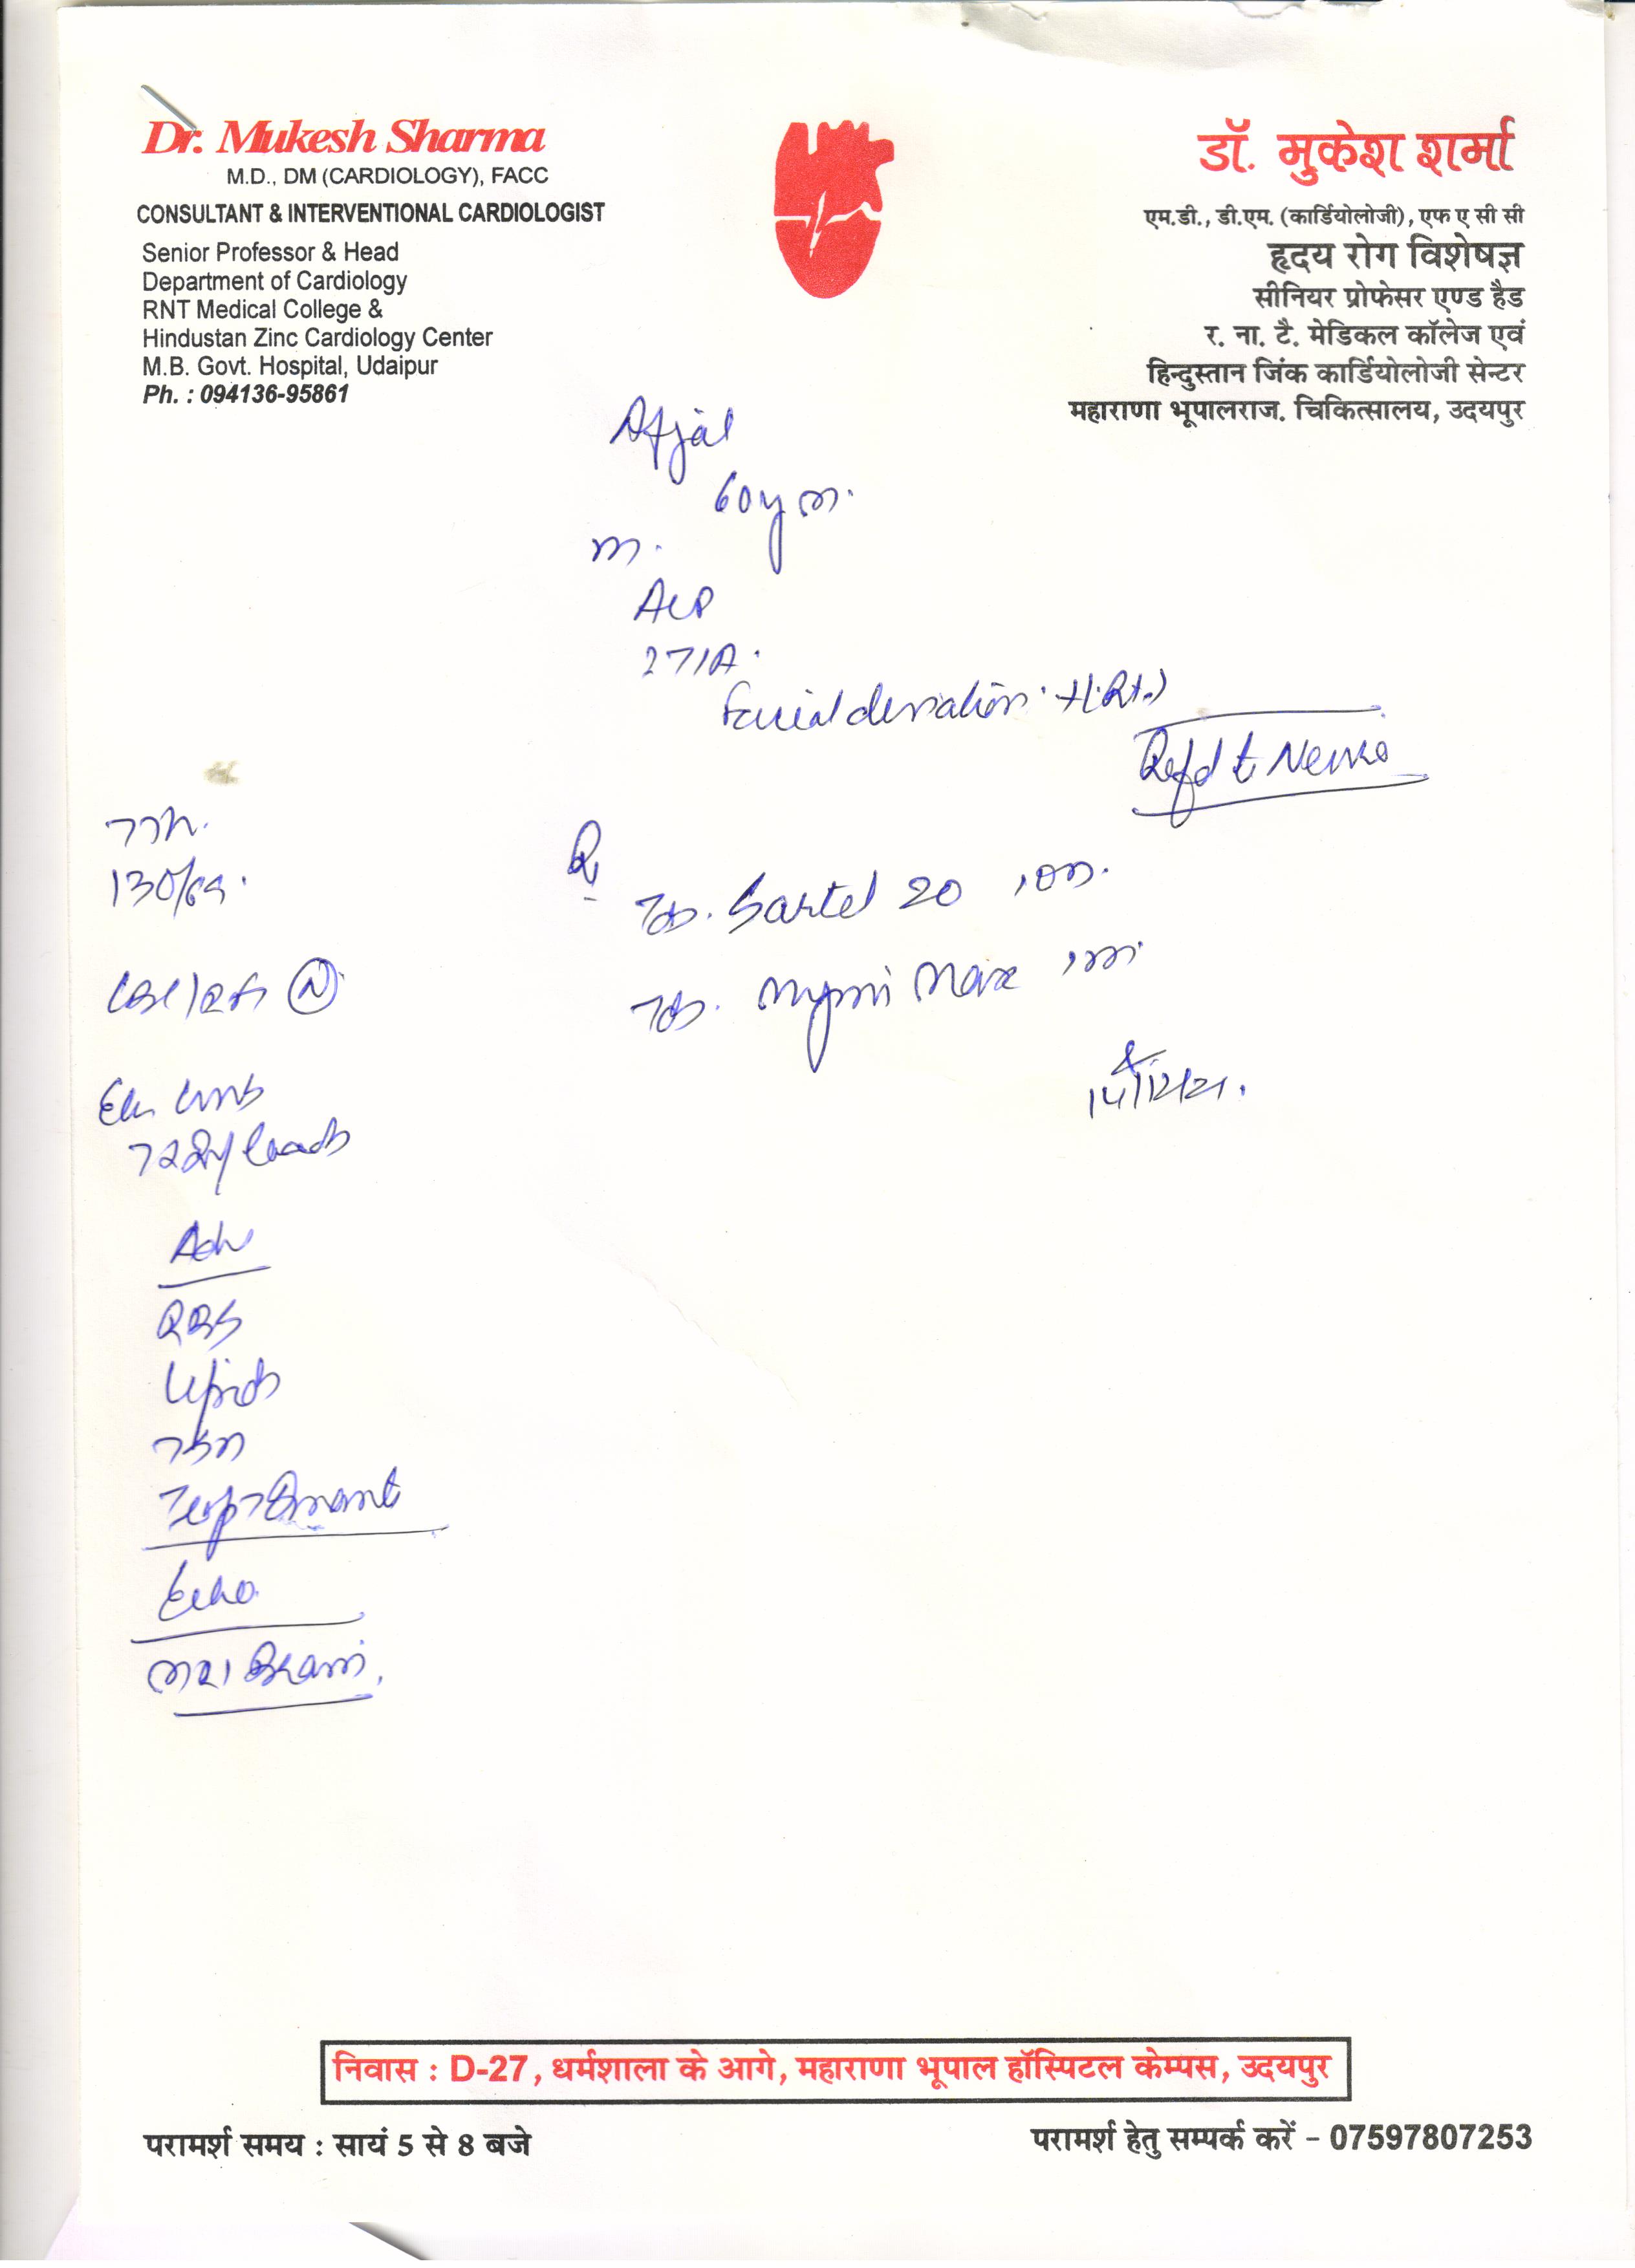 Dr. Mukesh Sharma
M.D., DM (CARDIOLOGY), FACC
CONSULTANT & INTERVENTIONAL CARDIOLOGIST
Senior Professor & Head
Department of Cardiology
RNT Medical College &
Hindustan Zinc Cardiology Center
M.B. Govt. Hospital, Udaipur
Ph. : 094136-95861
डॉ. मुकेश शर्मा
एम.डी., डी.एम. (कार्डियोलोजी), एफ ए सी सी
हृदय रोग विशेषज्ञ
सीनियर प्रोफेसर एण्ड हैड
र. ना. टै. मेडिकल कॉलेज एवं
हिन्दुस्तान जिंक कार्डियोलोजी सेन्टर
महाराणा भूपालराज. चिकित्सालय, उदयपुर
Afjal
60y m.
m.
Facial deviation + (Rt.)
Refd t Neuro
130/
Rx
Tab. Sartel 20
Tab.
14/12/21.
Adv
RBS
Lipids
Echo
MRI Brain.
निवास : D-27, धर्मशाला के आगे, महाराणा भूपाल हॉस्पिटल केम्पस, उदयपुर
परामर्श समय : सायं 5 से 8 बजे
परामर्श हेतु सम्पर्क करें - 07597807253